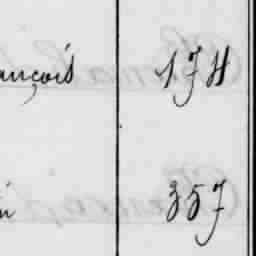 ançois 174
357